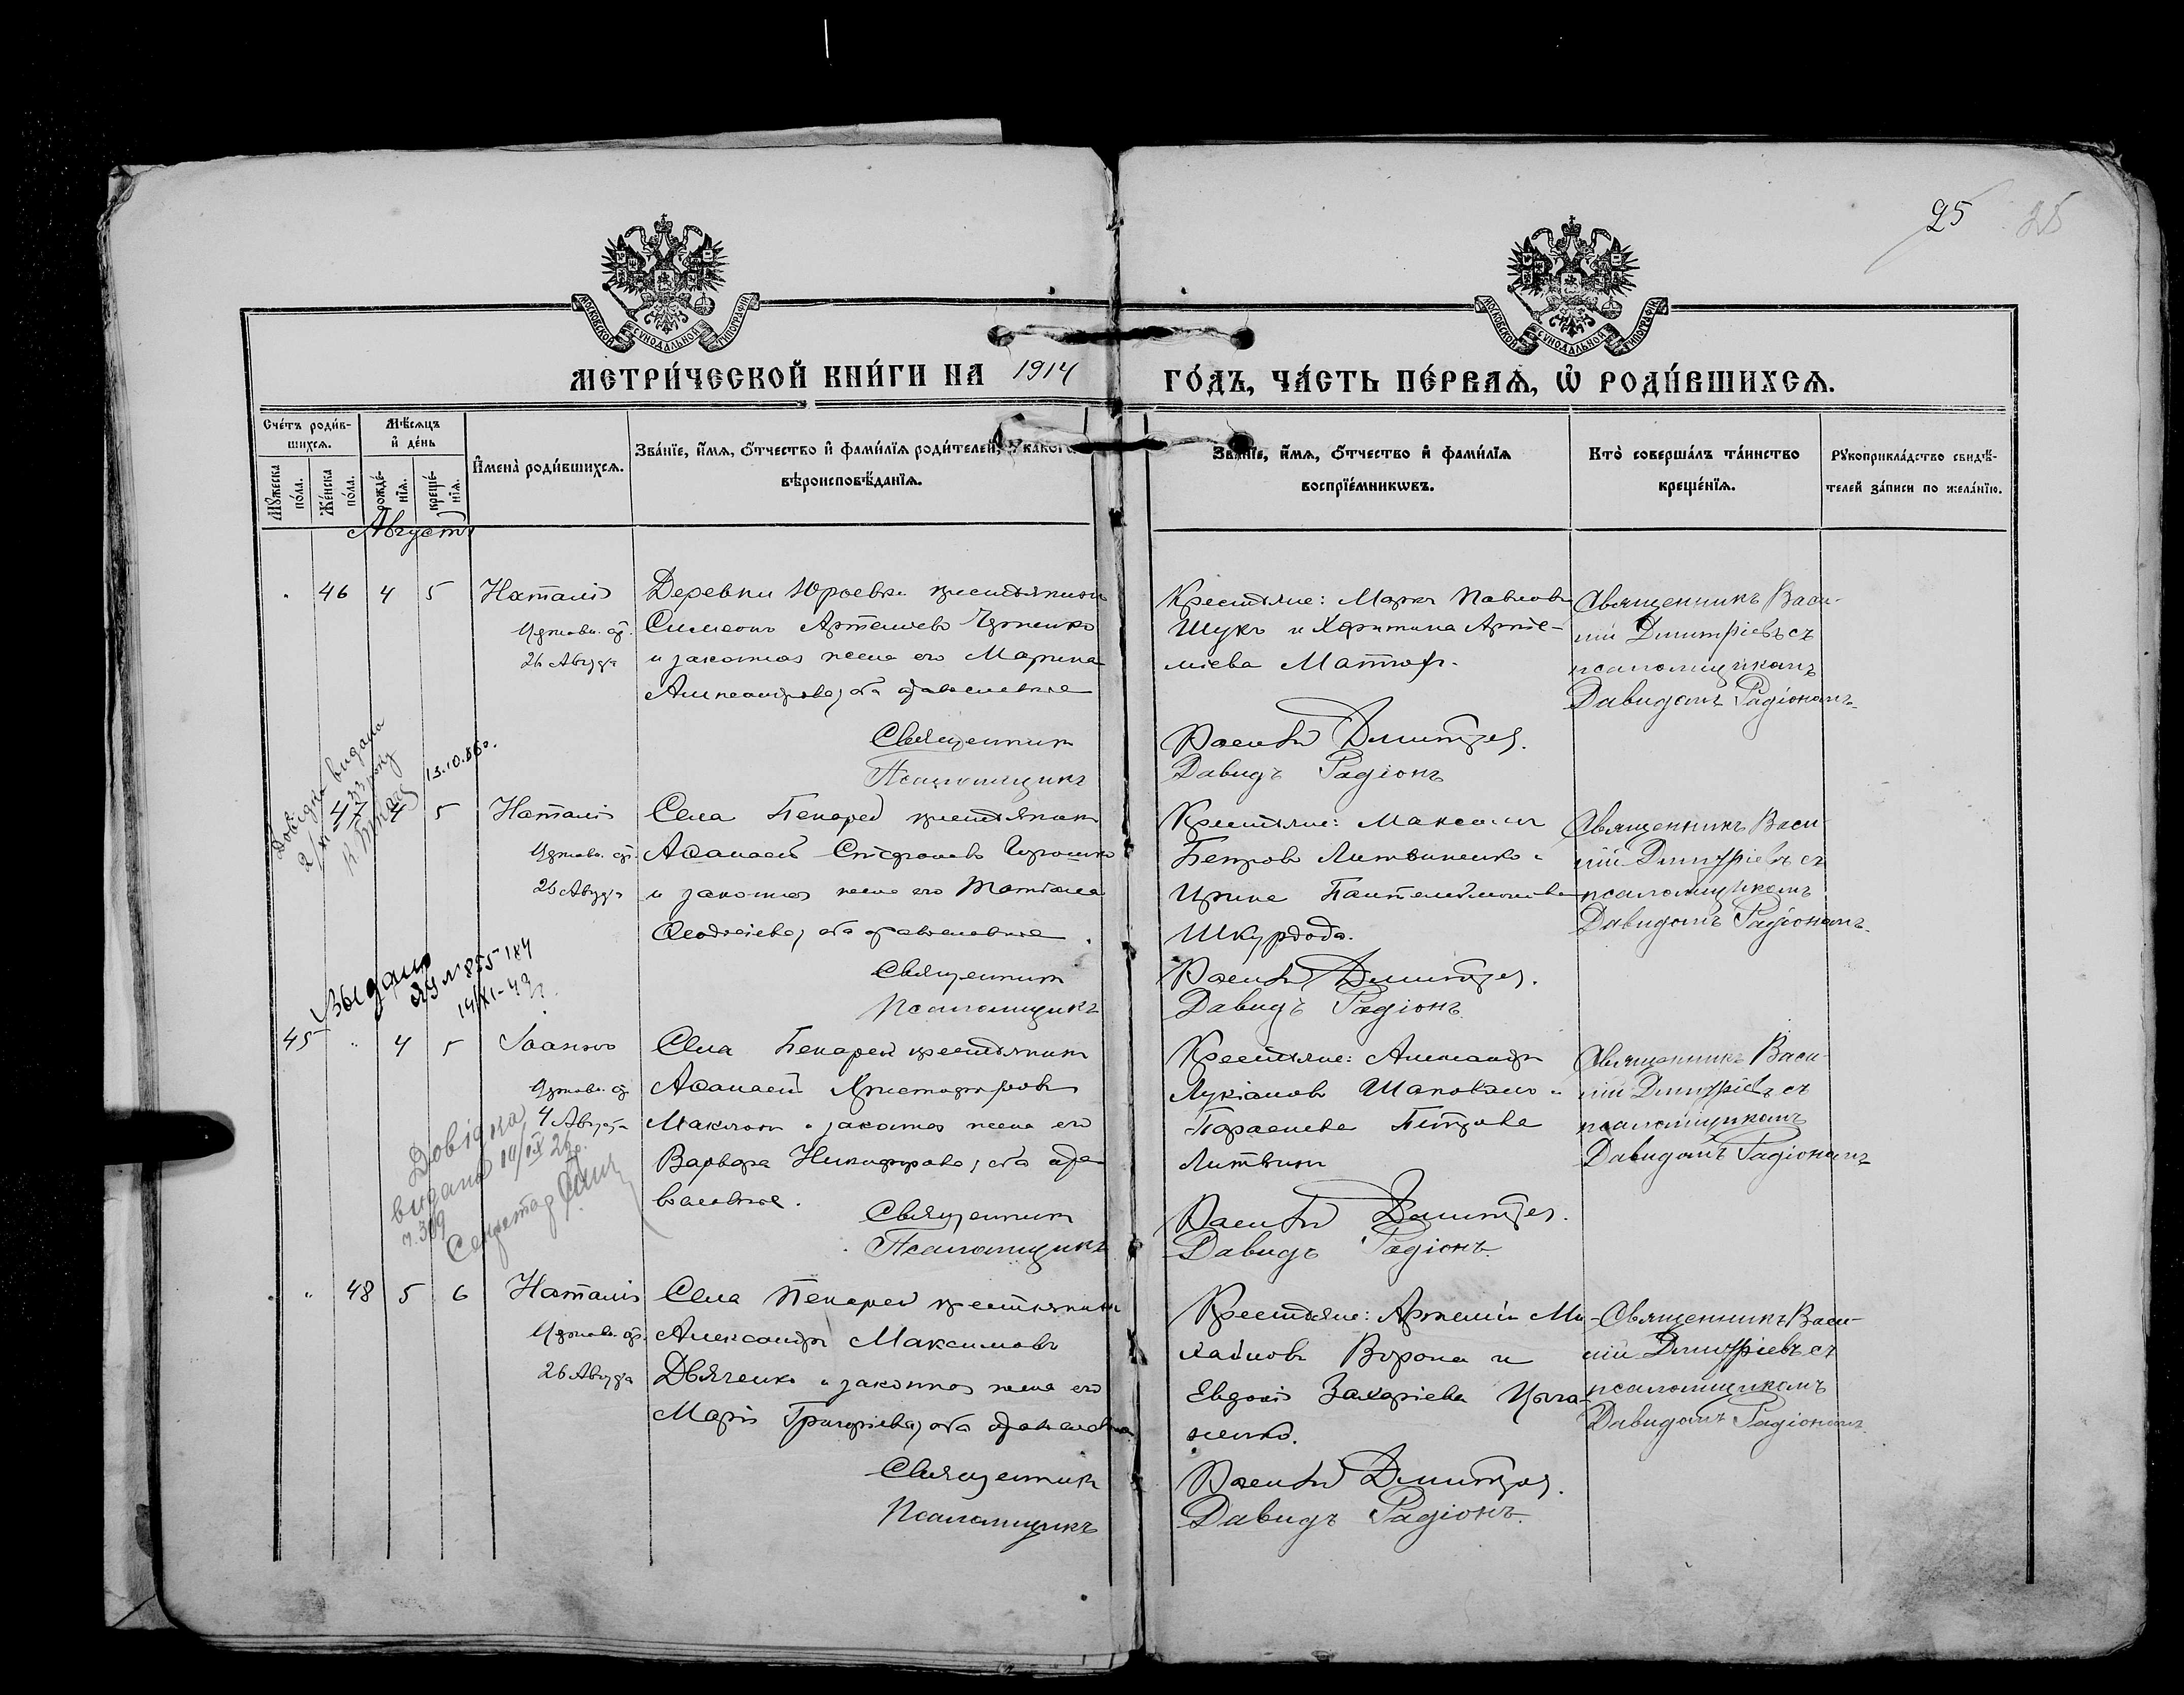 25 25
МОСКОВСКОЙ СѴНОДАЛЬНОЙ ТИПОГРАФІИ
МОСКОВСКОЙ СѴНОДАЛЬНОЙ ТИПОГРАФІИ
МЕТРИ́ЧЕСКОЙ КНИ́ГИ НА 1914
ГО́ДЪ, ЧА́СТЬ ПЕ́РВАѦ, Ѡ҆ РОДИ́ВШИХСѦ.
Сче́тъ роди́в-
шихсѧ.
Мꙋ́жеска по́ла.
Же́нска по́ла.
Мѣ́сѧцъ
и҆ де́нь
рожде́-нїѧ.
креще́-нїѧ.
И҆мена̀ роди́вшихсѧ.
Зва́нїе, и҆́мѧ, ѻ҆́тчество и҆ фами́лїѧ роди́телей, и҆ како́гѡ
вѣроисповѣ́данїѧ.
Зва́нїе, и҆́мѧ, ѻ҆́тчество и҆ фами́лїѧ
воспрїе́мникѡвъ.
Кто̀ соверша́лъ та́инство
креще́нїѧ.
Рꙋкоприкла́дство свидѣ́-
телей за́писи по жела́нїю.
Августъ
46 4 5 Наталія
26 Августа
Деревни Юрьевки крестьянинъ
Симеонъ Артемьевъ
и законная жена его Марина
Александрова, оба православные
Священникъ
Псаломщикъ
Крестьяне: Маркъ Павловъ
Шукъ и Харитина Арте-
міева
Василій Дмитріев.
Давидъ Радіонъ
Священникъ Васи-
лій Дмитріевъ съ
псаломщикомъ
Давидомъ Радіономъ.
Довідка видана
13.10.56г.
47 4 5 Наталія
26 Августа
Села Пекарей крестьянинъ
Аѳанасій Стефановъ
и законная жена его Татіана
Ѳеодосіева, оба православные.
Священникъ
Псаломщикъ
Крестьяне: Максимъ
Петровъ Литвиненко и
Ирина Пантелеймонова
Шкурдода.
Василій Дмитріев.
Давидъ Радіонъ
Священникъ Васи-
лій Дмитріевъ съ
псаломщикомъ
Давидомъ Радіономъ.
Выдано
14/XI-43г.
45 " 4 5 Іоаннъ
4 Августа
Села Пекарей крестьянинъ
Аѳанасій Христофоровъ
и законная жена его
Варвара Никифорова, оба пра-
вославные.
Священникъ
Псаломщикъ
Крестьяне: Александръ
Лукіановъ Шаповалъ и
Параскева Петрова
Литвинъ
Василій Дмитріев.
Давидъ Радіонъ.
Священникъ Васи-
лій Дмитріевъ съ
псаломщикомъ
Давидомъ Радіономъ
Довідка
видана
ч. 309
Секретар
" 48 5 6 Наталія
26 Августа
Села Пекарей крестьянинъ
Александръ Максимовъ
Дьяченко и законная жена его
Марія Григоріева, оба православные
Священникъ
Псаломщикъ
Крестьяне: Артемій Ми-
хайловъ Ворона и
Евдокія Захаріева
ненко.
Василій Дмитріев.
Давидъ Радіонъ.
Священникъ Васи-
лій Дмитріевъ съ
псаломщикомъ
Давидомъ Радіономъ